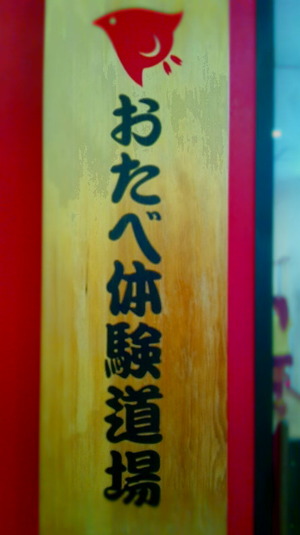 おたべ体験道場